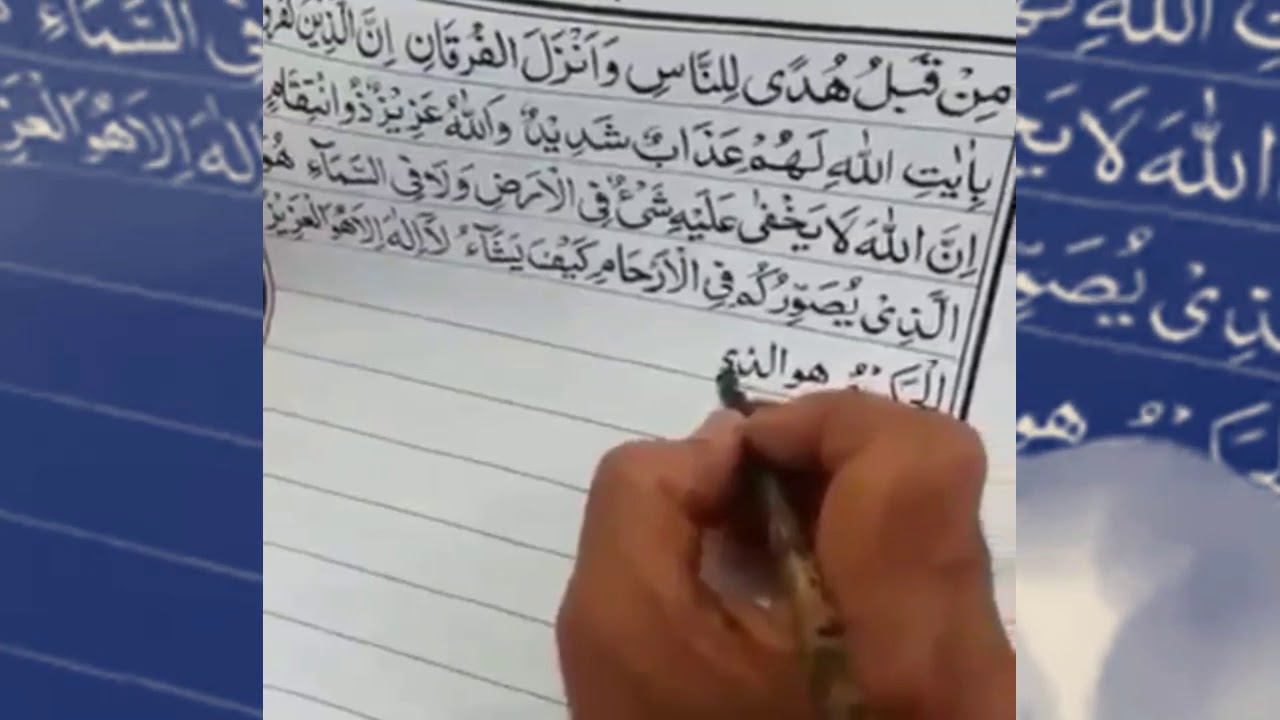 مِنْ قَبْلُ هُدًى لِلنَّاسِ وَاَنْزَلَ الْفُرْقَانِ اِنَّ الَّذِيْنَ كَفَرُو
بِاٰيٰتِ اللّٰهِ لَهُمْ عَذَابٌ شَدِيْدٌ وَاللّٰهُ عَزِيْزٌ ذُوانْتِقَامٍ
اِنَّ اللّٰهَ لَا يَخْفٰى عَلَيْهِ شَىْءٌ فِى الْاَرْضِ وَلَا فِى السَّمَآءِ هُوَ
الَّذِىْ يُصَوِّرُكُمْ فِى الْاَرْحَامِ كَيْفَ يَشَآءُ لَآ اِلٰهَ اِلَّا هُوَ الْعَزِيْزُ
هوالذي